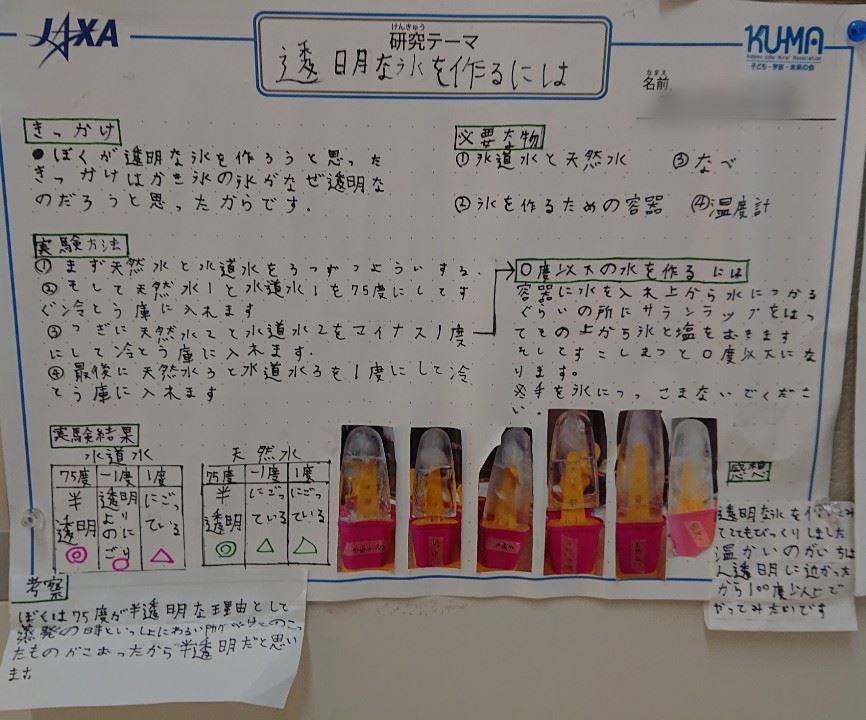 JAXA
けんきゅう
研究テーマ
透明な氷を作るには
KU-MA
子ども・宇宙・未来の会
なまえ
名前
きっかけ
●ぼくが透明な氷を作ろうと思った
きっかけはかき氷の氷がなぜ透明な
のだろうと思ったからです。
必要な物
①水道水と天然水 ③なべ
②氷を作るための容器 ④温度計
実験方法
①まず天然水と水道水を3つずつよういする。
②そして天然水1と水道水1を75度にしてす
ぐ冷とう庫に入れます
③つぎに天然水2と水道水2をマイナス1度
にして冷とう庫に入れます.
④最後に天然水3と水道水3を1度にして冷
とう庫に入れます
0度以下の水を作るには
容器に水を入れ上から水につかる
ぐらいの所にサランラップをはっ
てその上から氷と塩をおきます
そしてすこしまつと0度以下にな
ります。
※手を氷につっこまないでくださ
い.
実験結果
水道水
75度 -1度 1度
半透明 透明よりのにごり にごっている
◎ ○ △
天然水
75度 -1度 1度
半透明 にごっている にごっている
◎ △ △
考察
ぼくは75度が半透明な理由として
蒸発の時といっしょにわるい所が のこっ
たものがこおったから半透明だと思い
ます
感想
透明な氷を作ってみ
てとてもびっくりしました
温かいのがいちば
ん透明に近かった
から100度以上で
やってみたいです